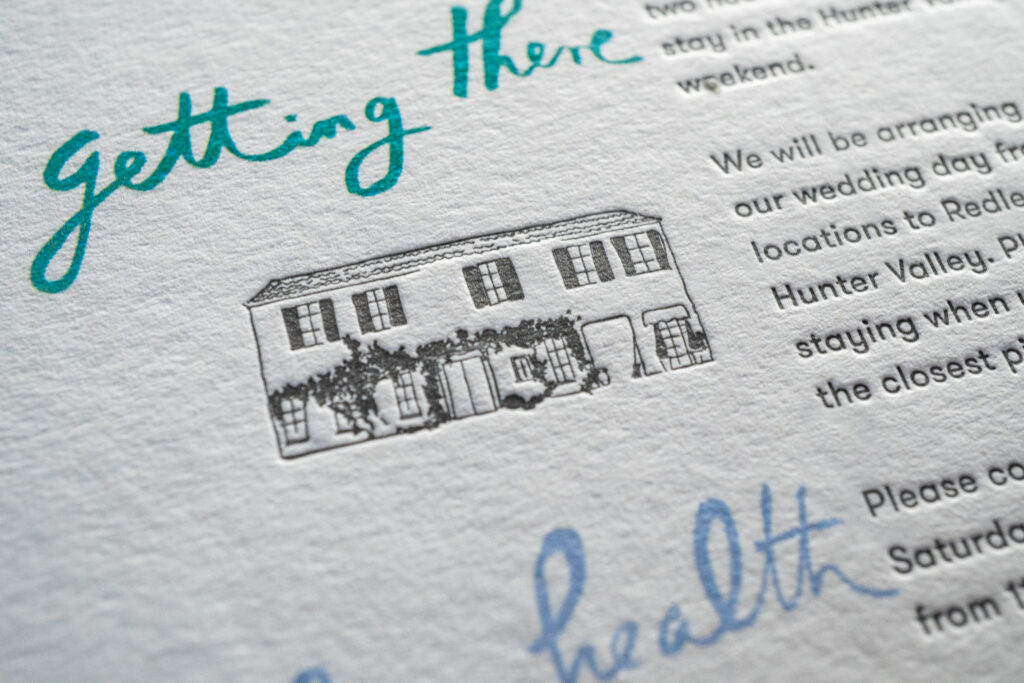 getting there
stay in the Hunter
weekend.
We will be arranging
our wedding day
locations to
Hunter Valley.
staying when
the closest
health
Please
from